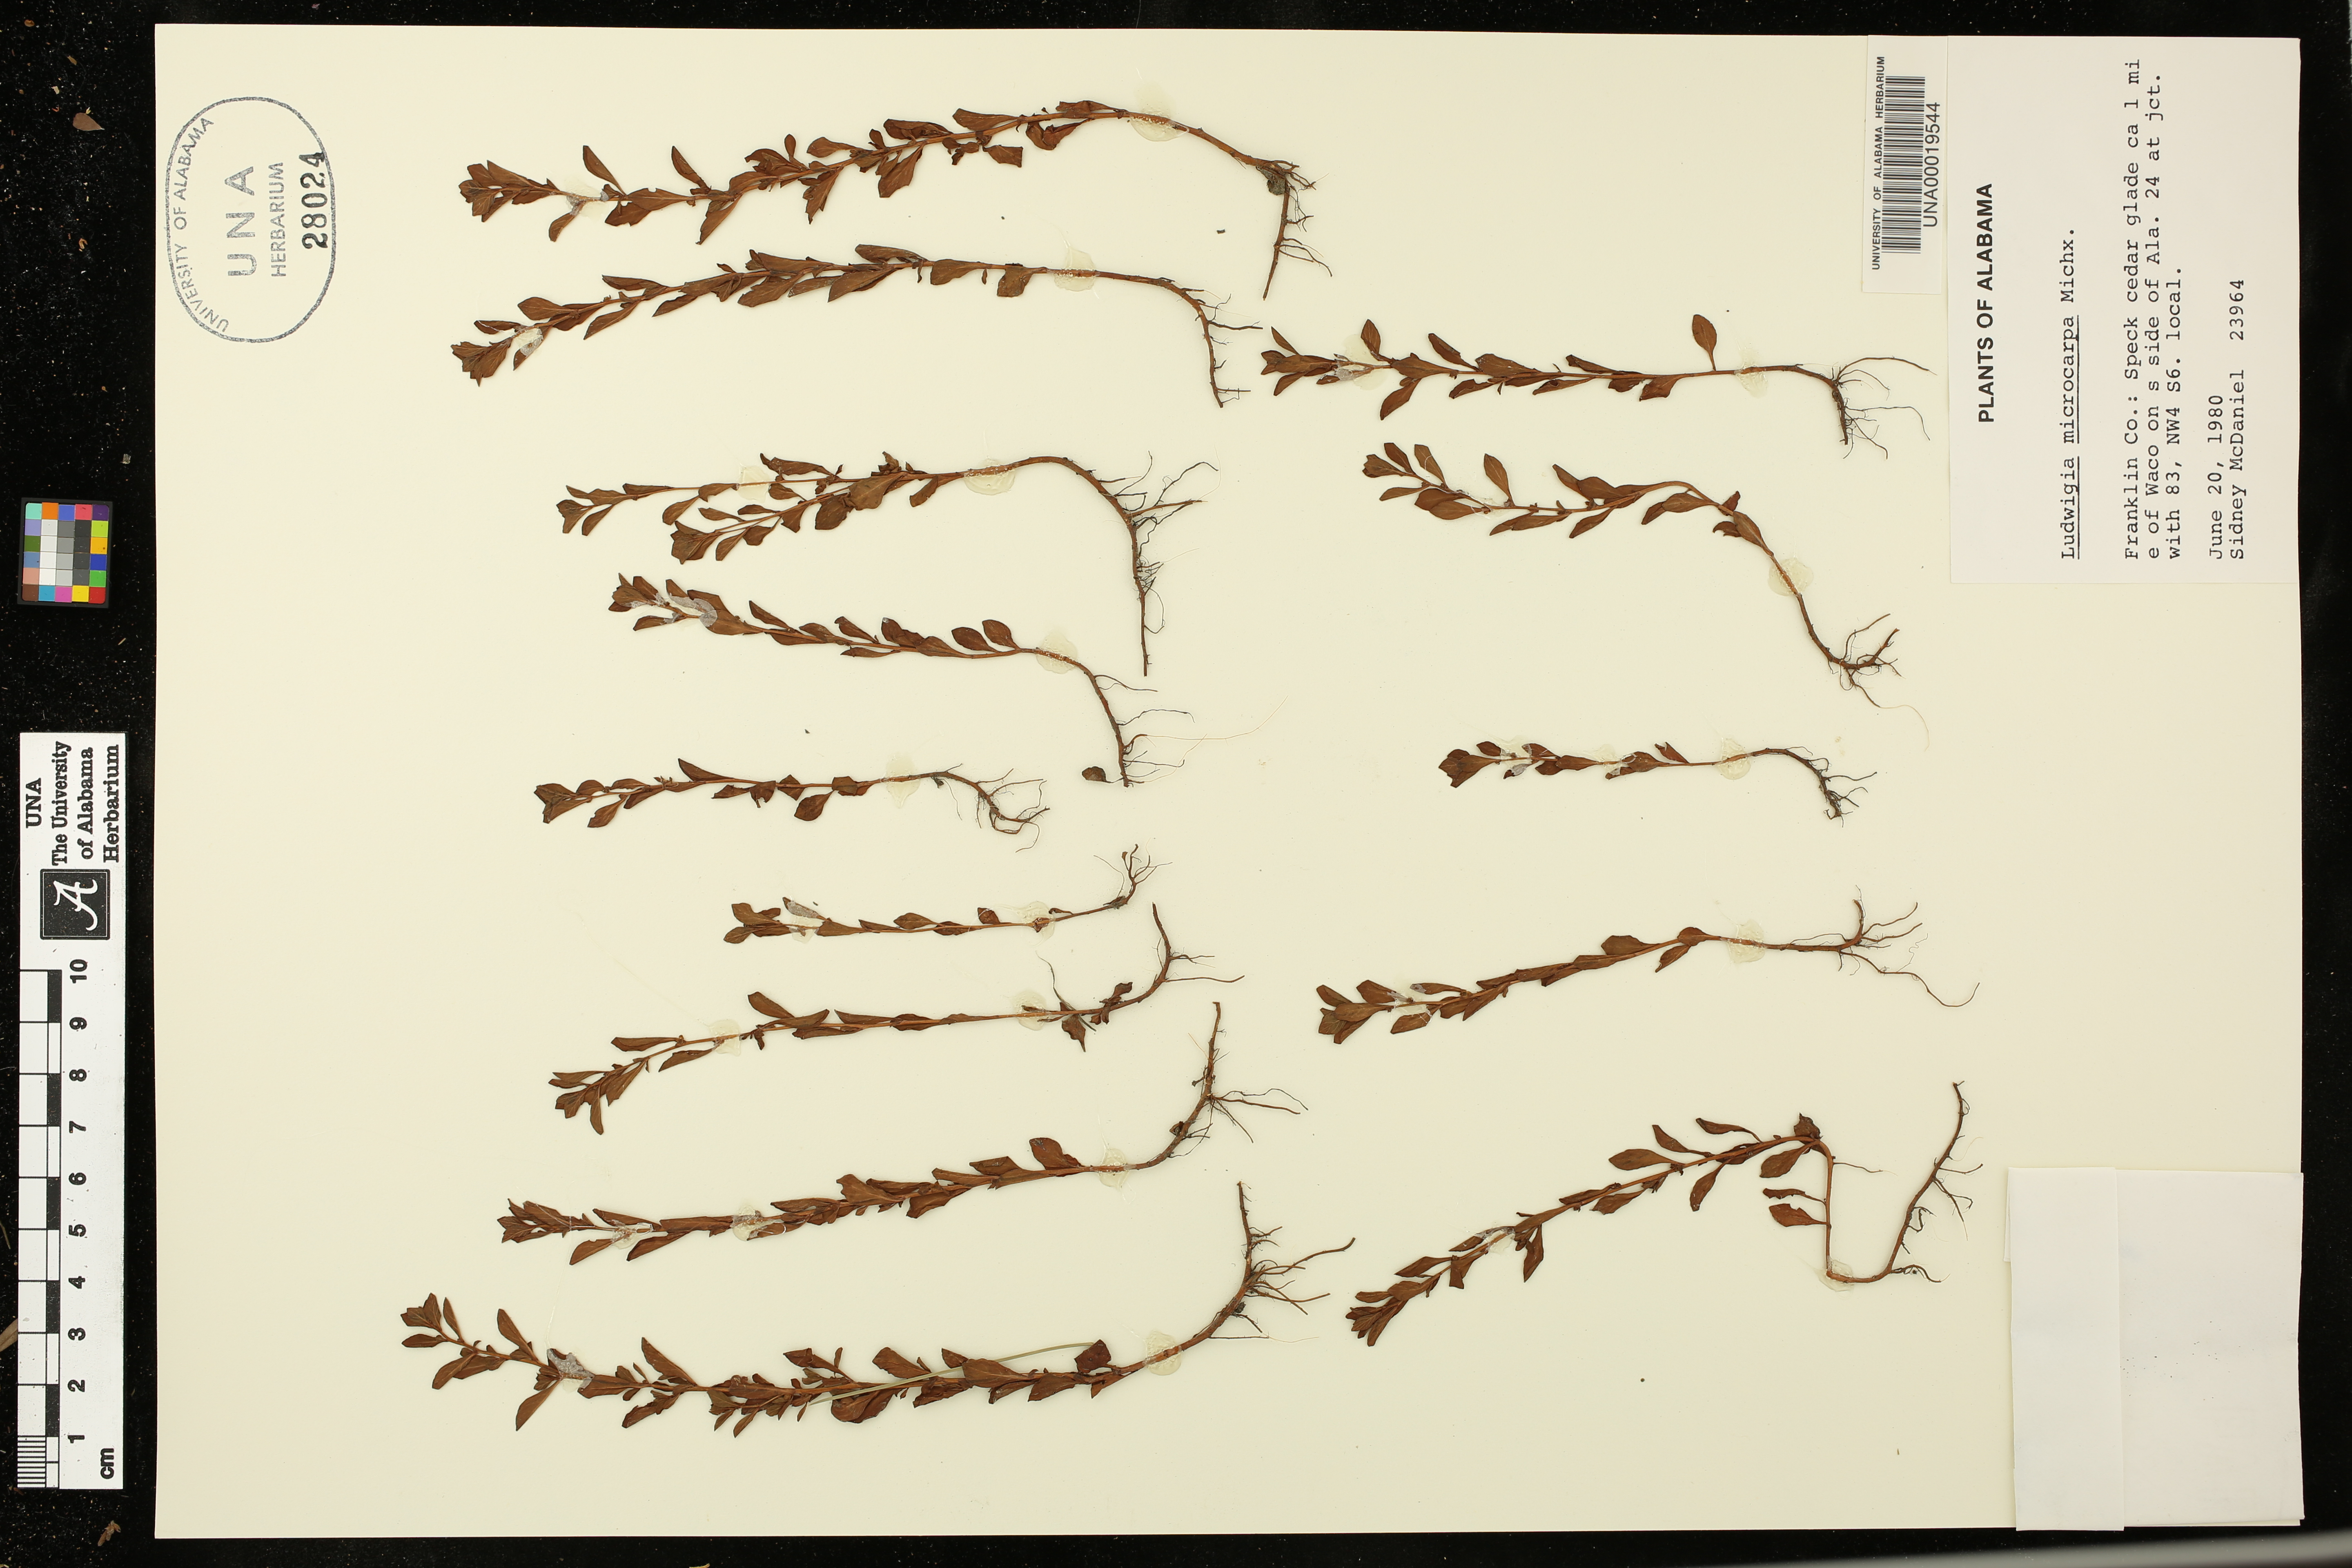 UNIVERSITY OF ALABAMA
UNA
HERBARIUM
28024
UNIVERSITY OF ALABAMA HERBARIUM
UNA00019544
PLANTS OF ALABAMA
Ludwigia microcarpa Michx.
Franklin Co.: Speck cedar glade ca 1 mi
e of Waco on s side of Ala. 24 at jct.
with 83, NW4 S6. local.
June 20, 1980
Sidney McDaniel 23964
UNA
The University
of Alabama
Herbarium
A
cm 1 2 3 4 5 6 7 8 9 10